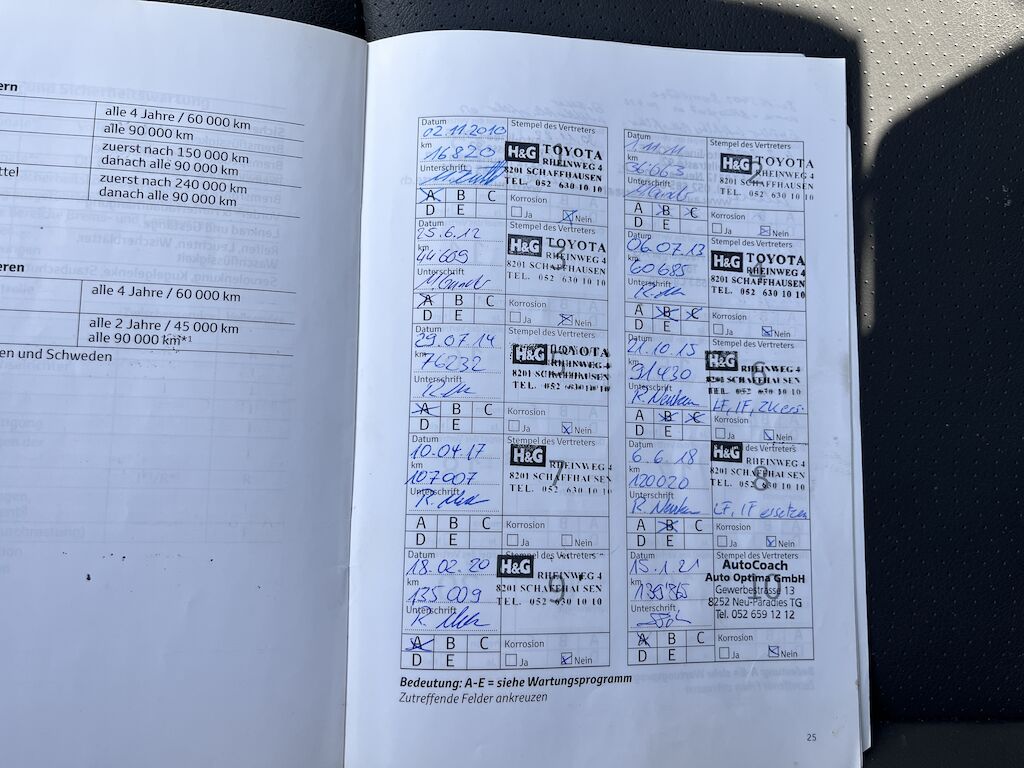 ern
alle 4 Jahre / 60 000 km
alle 90 000 km
zuerst nach 150 000 km
dahach alle 90 000 km
ttel
zuerst nach 240 000 km
danach alle 90 000 km
eren
alle 4 Jahre / 60 000 km
alle 2 Jahre / 45 000 km
alle 90 000 km*1
en und Schweden
Datum
02.11.2010
km
16820
Unterschrift
Stempel des Vertreters
H&G TOYOTA
RHEINWEG 4
8201 SCHAFFHAUSEN
TEL. 052 630 10 10
A B C
D E
Korrosion
Ja Nein
Datum
1.11.11
km
36063
Unterschrift
Stempel des Vertreters
H&G TOYOTA
RHEINWEG 4
8201 SCHAFFHAUSEN
TEL. 052 630 10 10
A B C
D E
Korrosion
Ja Nein
Datum
25.6.12
km
44609
Unterschrift
Stempel des Vertreters
H&G TOYOTA
3
RHEINWEG 4
8201 SCHAFFHAUSEN
TEL. 052 630 10 10
A B C
D E
Korrosion
Ja Nein
Datum
06.07.13
km
60685
Unterschrift
Stempel des Vertreters
H&G TOYOTA
RHEINWEG 4
8201 SCHAFFHAUSEN
TEL. 052 630 10 10
A B C
D E
Korrosion
Ja Nein
Datum
29.07.14
km
76232
Unterschrift
H&G TOYOTA
RHEINWEG 4
8201 SCHAFFHAUSEN
TEL. 052 630 10 10
A B C
D E
Korrosion
Ja Nein
Datum
21.10.15
km
91430
Unterschrift
Stempel des Vertreters
H&G
6
RHEINWEG 4
8201 SCHAFFHAUSEN
TEL. 052 630 10 10
LF, IF,
A B C
D E
Korrosion
Ja Nein
Datum
10.04.17
km
107007
Unterschrift
Stempel des Vertreters
H&G
7
RHEINWEG 4
8201 SCHAFFHAUSEN
TEL. 052 630 10 10
A B C
D E
Korrosion
Ja Nein
Datum
6.6.18
km
120020
Unterschrift
des Vertreters
H&G
8
RHEINWEG 4
8201 SCHAFFHAUSEN
TEL. 052 630 10 10
LF, IF ersetzen
A B C
D E
Korrosion
Ja Nein
Datum
18.02.20
km
135009
Unterschrift
Stempel des Vertreters
H&G
9
RHEINWEG 4
8201 SCHAFFHAUSEN
TEL. 052 630 10 10
A B C
D E
Korrosion
Ja Nein
Datum
15.1.21
km
Unterschrift
Stempel des Vertreters
10
AutoCoach
Auto Optima GmbH
Gewerbestrasse 13
8252 Neu-Paradies TG
Tel. 052 659 12 12
A B C
D E
Korrosion
Ja Nein
Bedeutung: A-E = siehe Wartungsprogramm
Zutreffende Felder ankreuzen
25